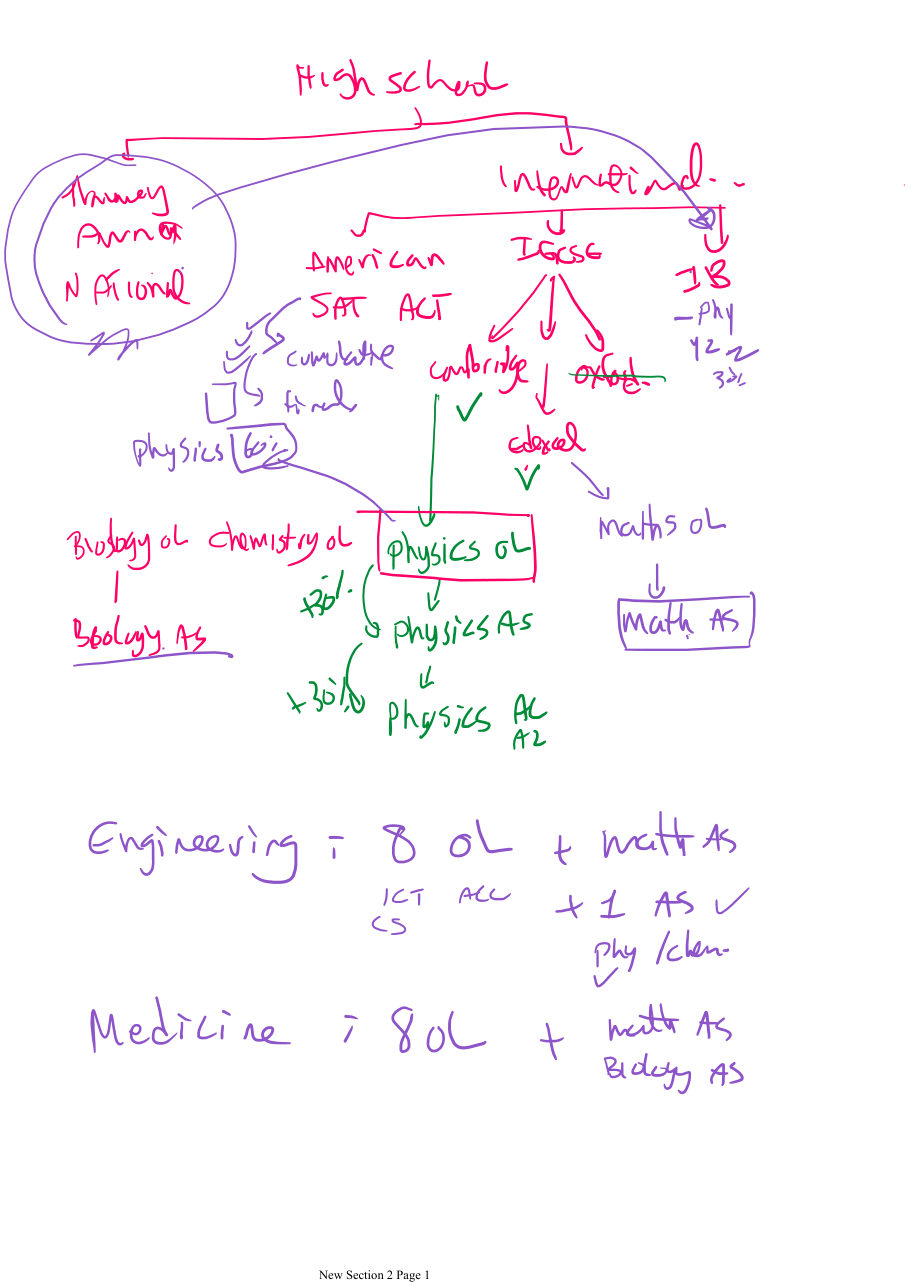 High school
International..
National
American
IGCSE
IB
SAT ACT
- Phy
Y2
30%
cumulative
final
cambridge
oxford.
edexcel
physics 60%
maths OL
Biology OL chemistry OL
physics OL
+30%
math AS
Biology AS
physics AS
+30%
physics AL
A2
Engineering : 8 OL + math AS
ICT ACC
CS
+ 1 AS
phy / chem.
Medicine : 8 OL + math AS
Biology AS
New Section 2 Page 1